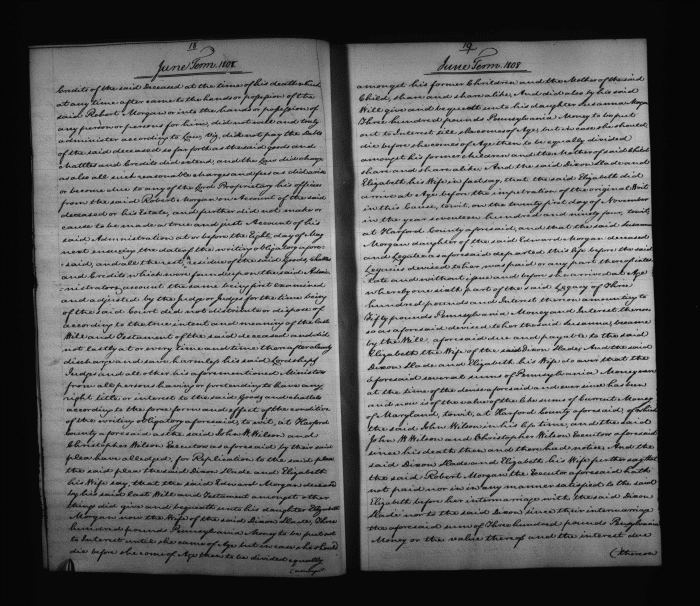 18
June Term 1808
Credits of the said Deceased at the time of his death which
at any time after came to the hands or possession of the
said Robert Morgan or into the hands or possession of
any person or persons for him, did not well and truly
administer according to Law Viz, did not pay the Debts
of the said deceased as far forth as the said goods and
chattles and Credits did extend, and the Law did charge
as also all such reasonable charges and fees as did arise
or become due to any of the Lord Proprietary his officers
from the said Robert Morgan on Account of the said
deceased or his Estate, and further did not make or
cause to be made a true and just Account of his
said Administration at or before the Eight day of May
next ensuing the date of the writing obligatory afore-
said, and all the rest & residue of the said goods, chattles
and Credits which were found upon the said Admi-
nistrators account the same being first examined
and adjusted by the Judge or Judges for the time being
of the said Court did not distribute or dispose of
according to the true intent and meaning of the last
Will and Testament of the said deceased and did
not lastly at or every time and times thereafter clearly
discharge and save harmless his said Lordships
Judges and all other his aforementioned Ministers
from all persons having or pretending to have any
right title or interest to the said Goods and chattles
according to the force form and effect of the condition
of the writing obligatory aforesaid, to wit, at Harford
County aforesaid as the said John W. Wilson and
Christopher Wilson Executors as aforesaid by their said
plea have alledged, for Replication to the said plea
the said plea the said Dixon Slade and Elizabeth
his Wife say, that the said Edward Morgan deceased
by his said last Will and Testament amongst other
things did give and bequeath unto his daughter Elizabeth
Morgan now the Wife of the said Dixon Slade, Three
hundred pounds Pennsylvania Money to be put out
to Interest until she came of Age but in case she should
die before she came of Age then to be divided equally
amongst
19
June Term 1808
amongst his former Children and the Mother of the said
Child, share and share alike; And did also by his said
Will give and bequeath unto his daughter Susanna Morgan
Three hundred pounds Pennsylvania Money to be put
out to Interest till she comes of Age, but in case she should
die before she comes of Age then to be equally divided
amongst his former children and the Mother of said Child
share and share alike. And the said Dixon Slade and
Elizabeth his Wife in fact say, that the said Elizabeth did
arrive at Age before the impetration of the original Writ
in this Cause, to wit, on the twenty first day of November
in the year seventeen hundred and ninety four, to wit,
at Harford County aforesaid, and that the said Susanna
Morgan daughter of the said Edward Morgan deceased
and Legatee as aforesaid departed this life before the said
Legacies devised to her was paid or any part thereof intes-
tate and without issue and before she arrived at Age
whereby one sixth part of the said Legacy of Three
hundred pounds and Interest thereon amounting to
Fifty pounds Pennsylvania Money and Interest thereon
so as aforesaid devised to her the said Susanna, became
by the Will aforesaid due and payable to the said
Elizabeth the Wife of the said Dixon Slade; And the said
Dixon Slade and Elizabeth his Wife do aver that the
aforesaid several sums of Pennsylvania Money were
at the time of the demise aforesaid and ever since has been
and now is of the value of the like sums of current Money
of Maryland, to wit, at Harford County aforesaid, of which
the said John Wilson in his life time, and the said
John W Wilson and Christopher Wilson Executors aforesaid
since his death then and there had notice. And the
said Dixon Slade and Elizabeth his Wife further say that
the said Robert Morgan the Executor aforesaid hath
not paid nor in any manner satisfied to the said
Elizabeth before her intermarriage with the said Dixon
Slade nor to the said Dixon since their intermarriage
the aforesaid sum of Three hundred pounds Pennsylvania
Money or the value thereof and the interest due
thereon